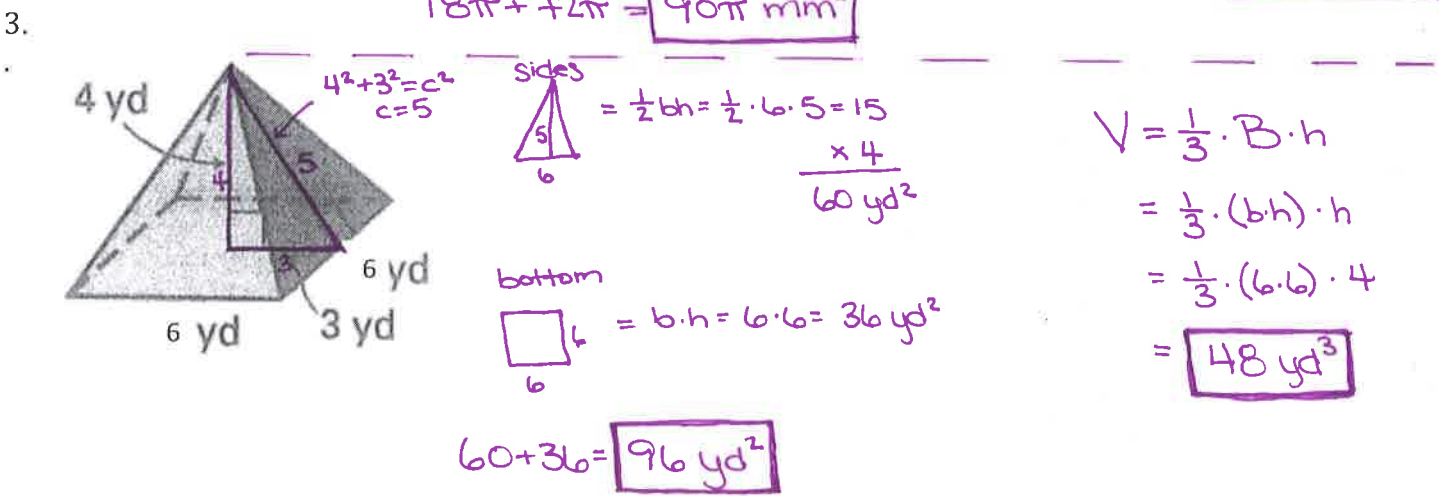 3.
18π + 72π = 90π mm
.
4 yd
4² + 3² = c²
c = 5
4
5
3
6 yd
3 yd
6 yd
sides
5
6
= ½bh = ½·6·5 = 15
x 4
60 yd²
bottom
6
6
= b·h = 6·6 = 36 yd²
60+36= 96 yd²
V = ⅓·B·h
= ⅓·(b·h)·h
= ⅓·(6·6)·4
= 48 yd³